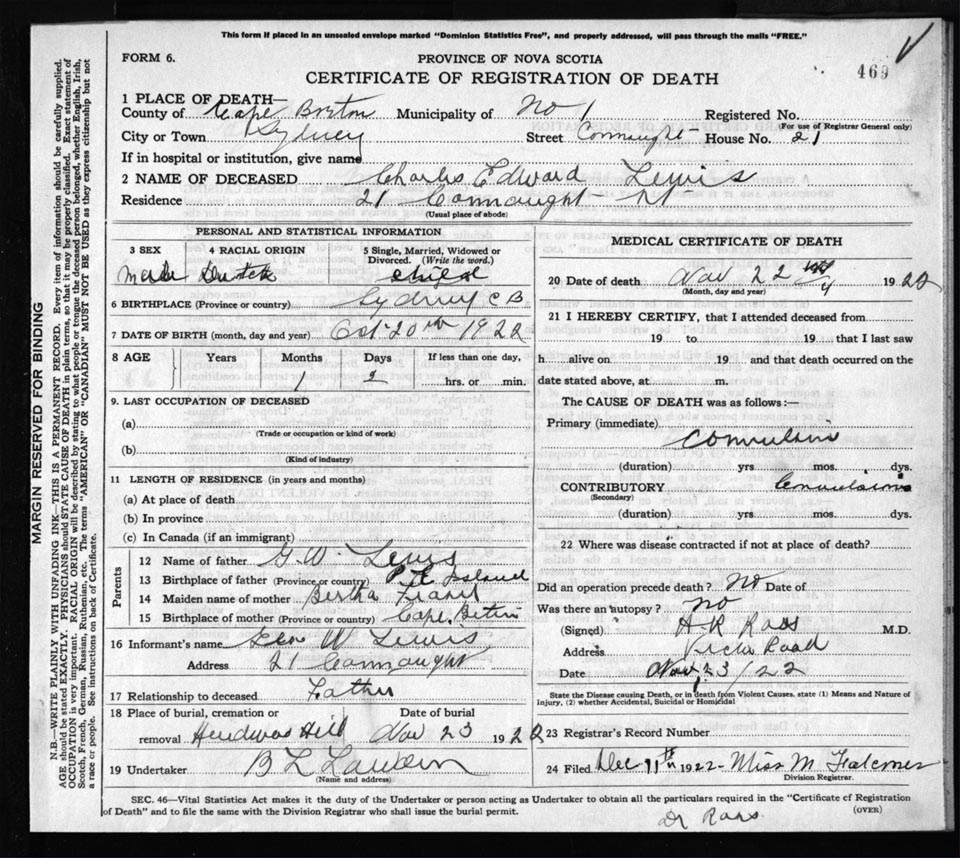 This form if placed in an unsealed envelope marked "Dominion Statistics Free", and properly addressed, will pass through the mails "FREE."
FORM 6.
PROVINCE OF NOVA SCOTIA
469
CERTIFICATE OF REGISTRATION OF DEATH
1 PLACE OF DEATH—
County of Cape Breton Municipality of No 1 Registered No.
(For use of Registrar General only)
City or Town Sydney Street Connaught House No. 21
If in hospital or institution, give name
2 NAME OF DECEASED Charles Edward Lewis
Residence 21 Connaught St
(Usual place of abode)
PERSONAL AND STATISTICAL INFORMATION
3 SEX 4 RACIAL ORIGIN 5 Single, Married, Widowed or Divorced. (Write the word.)
Male Dutch child
6 BIRTHPLACE (Province or country) Sydney C B.
7 DATE OF BIRTH (month, day and year) Oct 20th 1922
8 AGE Years Months Days If less than one day,
1 2 hrs. or min.
9. LAST OCCUPATION OF DECEASED
(a)
(Trade or occupation or kind of work)
(b)
(Kind of industry)
11 LENGTH OF RESIDENCE (in years and months)
(a) At place of death
(b) In province
(c) In Canada (if an immigrant)
Parents
12 Name of father G. W. Lewis
13 Birthplace of father (Province or country) P E Island
14 Maiden name of mother Bertha
15 Birthplace of mother (Province or country) Cape Breton
16 Informant's name Geo W Lewis
Address 21 Connaught
17 Relationship to deceased Father
18 Place of burial, cremation or removal Hardwood Hill
Date of burial Nov 23 1922
19 Undertaker B L
(Name and address)
MEDICAL CERTIFICATE OF DEATH
20 Date of death Nov 22 1922
(Month, day and year)
21 I HEREBY CERTIFY, that I attended deceased from
19 to 19 that I last saw
h alive on 19 and that death occurred on the
date stated above, at m.
The CAUSE OF DEATH was as follows:—
Primary (immediate)
Convulsions
(duration) yrs mos. dys.
CONTRIBUTORY Convulsions
(Secondary)
(duration) yrs. mos. dys.
22 Where was disease contracted if not at place of death?
Did an operation precede death? No Date of
Was there an autopsy? No
(Signed) H R Ross M.D.
Address Victoria Road
Date Nov 23/22
State the Disease causing Death, or in death from Violent Causes, state (1) Means and Nature of
Injury, (2) whether Accidental, Suicidal or Homicidal
23 Registrar's Record Number
24 Filed Dec 11th 1922 Miss M Falconer
Division Registrar.
SEC. 46—Vital Statistics Act makes it the duty of the Undertaker or person acting as Undertaker to obtain all the particulars required in the "Certificate of Registration
of Death" and to file the same with the Division Registrar who shall issue the burial permit.
(OVER)
Dr Ross
MARGIN RESERVED FOR BINDING
N.B.—WRITE PLAINLY WITH UNFADING INK—THIS IS A PERMANENT RECORD. Every item of information should be carefully supplied.
AGE should be stated EXACTLY. PHYSICIANS should STATE CAUSE OF DEATH in plain terms, so that it may be properly classified. Exact statement of
OCCUPATION is very important. RACIAL ORIGIN will be described by stating to what people or tongue the deceased person belonged, whether English, Irish,
Scotch, French, German, Russian, Ruthenian, etc. The terms "AMERICAN" or "CANADIAN" MUST NOT BE USED as they express citizenship but not
a race or people. See instructions on back of Certificate.